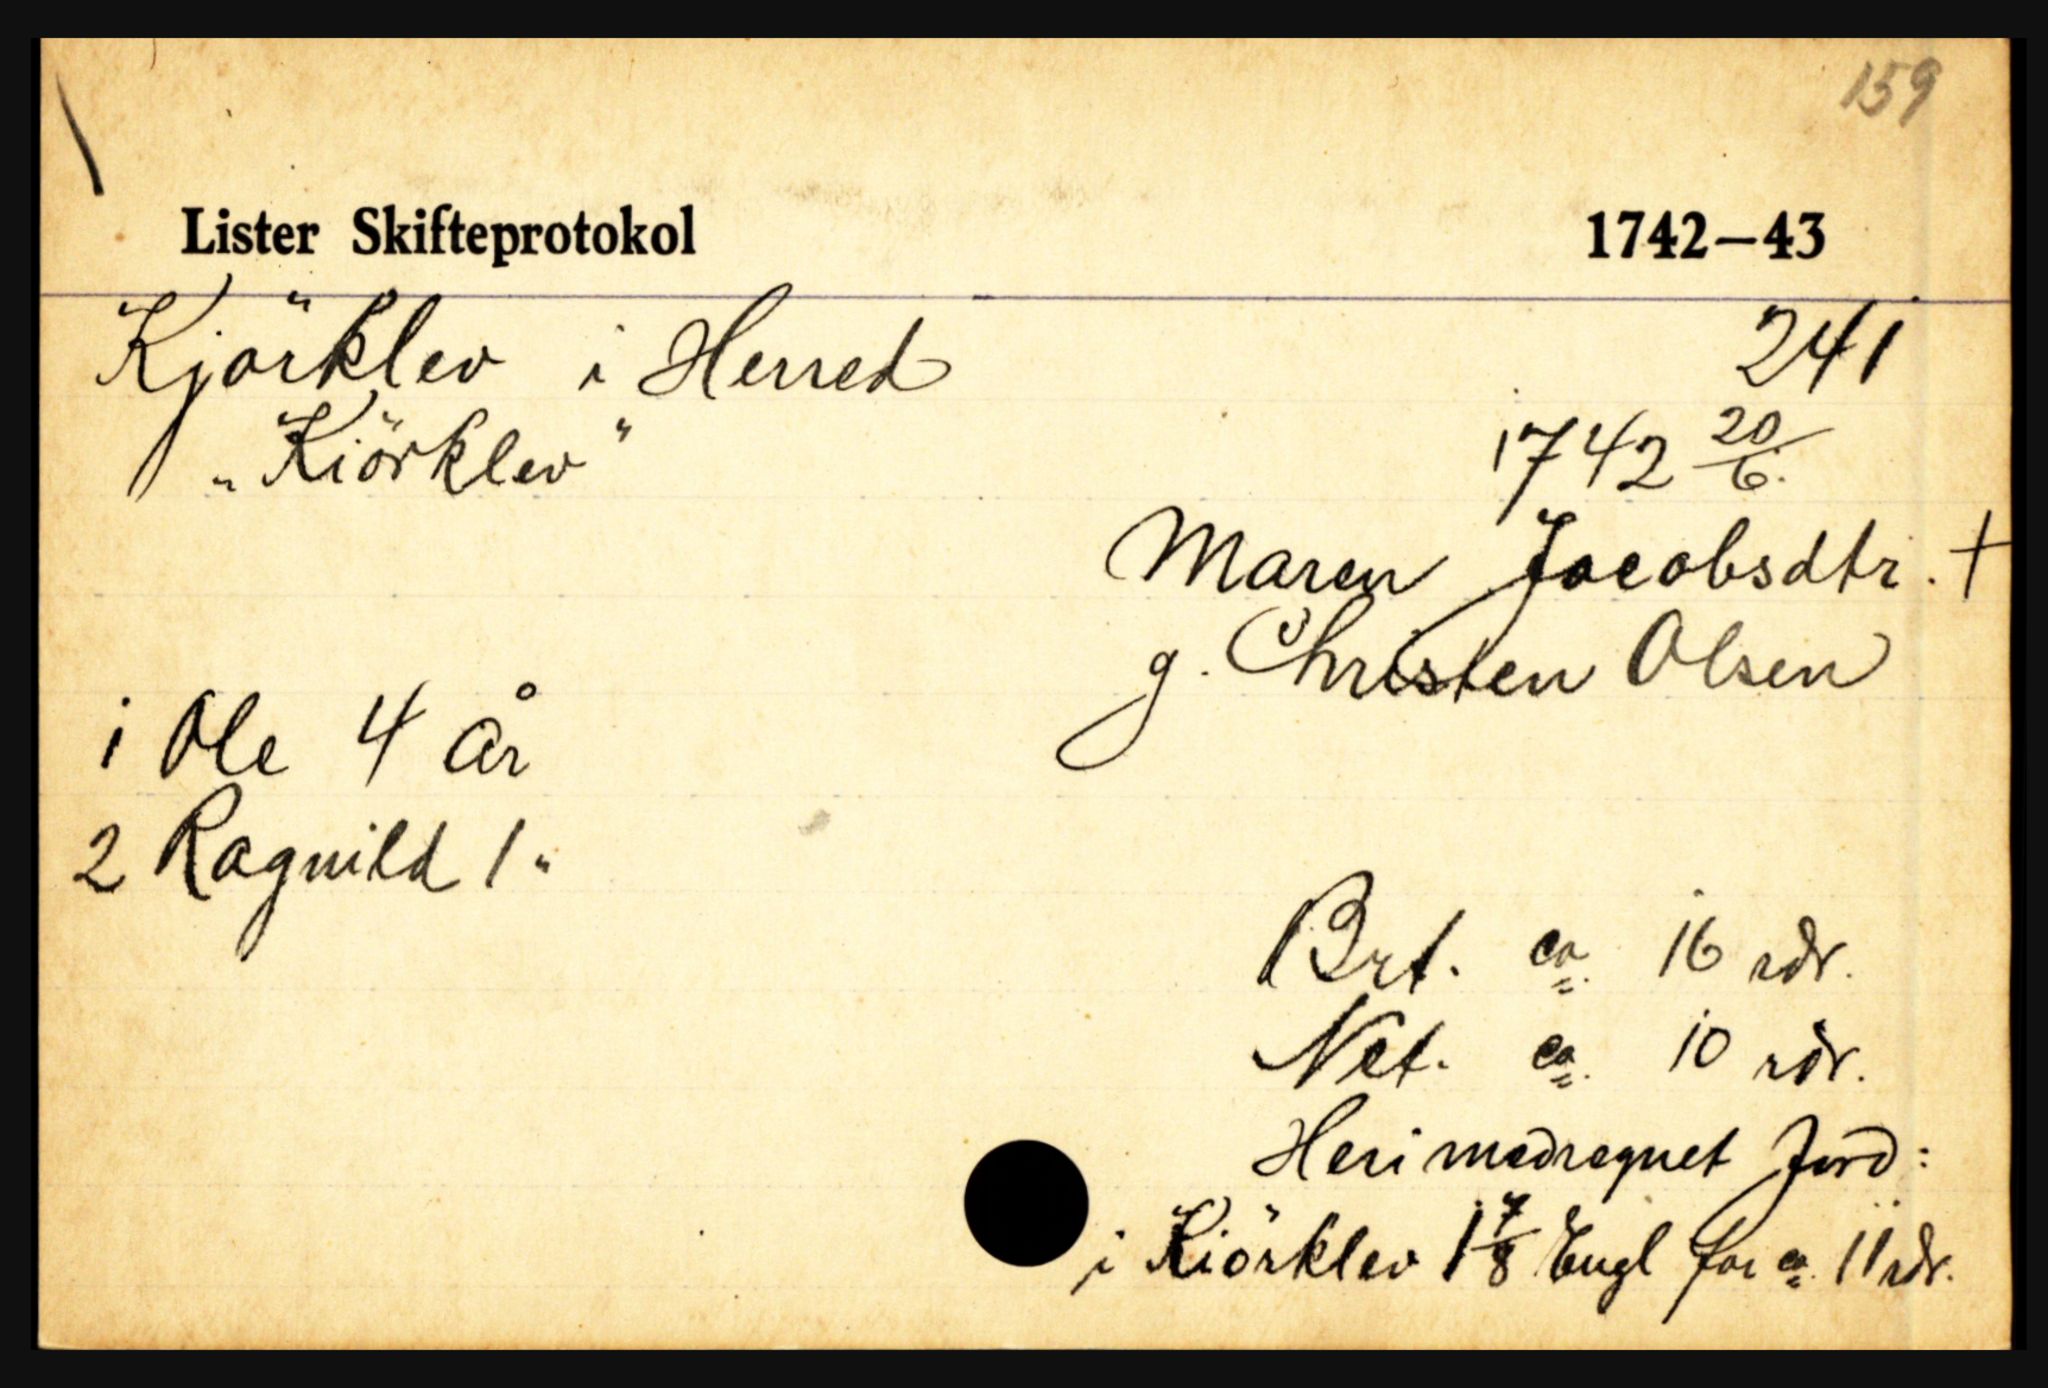 159
Lister Skifteprotokol 1742–43
Kjörklev i Herred 241
"Kiörklev" 1742 20/6.
Maren Jacobsdtr. †
g. Christen Olsen
1 Ole 4 år
2 Ragnild 1 "
Brt. ca. 16 rdr.
Net. ca. 10 rdr.
Heri medregnet Jord:
i Kiörklev 1 7/8 Engl for ca. 11 rdr.